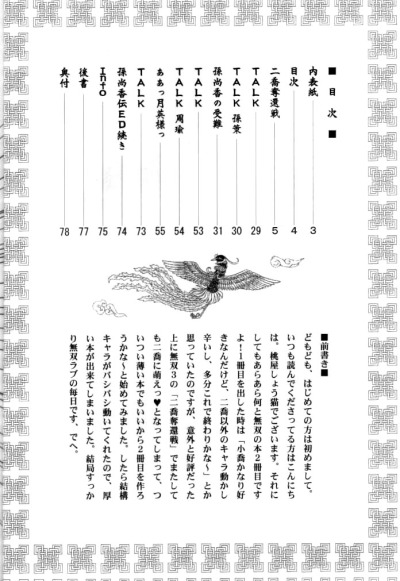 ■目次■
内表紙 3
目次 4
二喬奪還戦 5
TALK 29
TALK 孫策 30
孫尚香の受難 31
TALK 53
TALK 周瑜 54
ああっ月英様っ 55
TALK 73
孫尚香伝ED続き 74
Info 75
後書 77
奥付 78
■前書き■
どもども、はじめての方は初めまして。
いつも読んでくださってる方はこんにち
は。桃屋しょう猫でございます。それに
してもあらあら何と無双の本2冊目です
よ!1冊目を出した時は「小喬かなり好
きなんだけど、二喬以外のキャラ動かし
辛いし、多分これで終わりかな〜」とか
思っていたのですが、意外と好評だった
上に無双3の「二喬奪還戦」でまたして
も二喬に萌えっ♥となってしまって、つ
いつい薄い本でもいいから2冊目を作ろ
うかな〜と始めてみました。したら結構
キャラがバシバシ動いてくれたので、厚
い本が出来てしまいました。結局すっか
り無双ラブの毎日です、でへ。